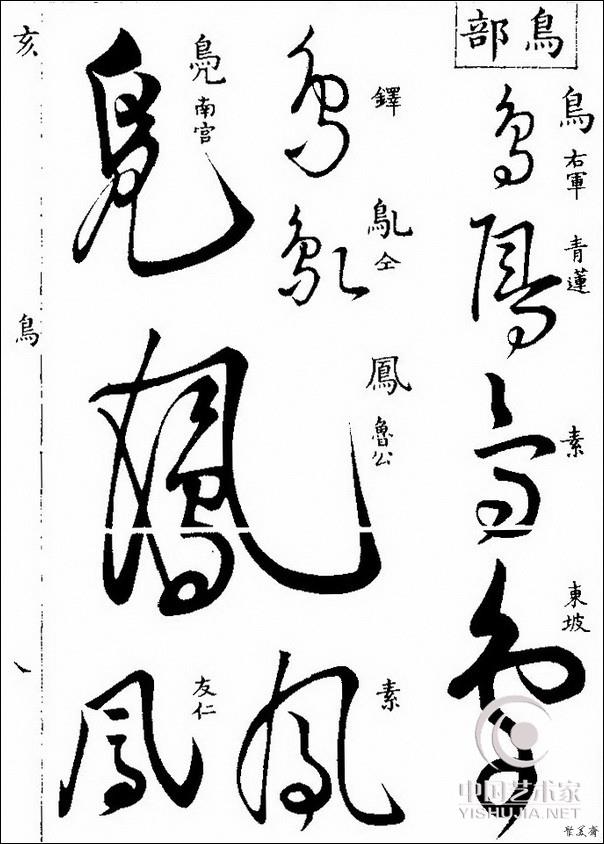 鳥部
鳥 右軍
青蓮
素
東坡
鐸
鳦 仝
鳳 魯公
鳳
素
鳧 南宮
鳧
鳳
友仁
亥
鳥
中国艺术家
YISHUJIA.NET